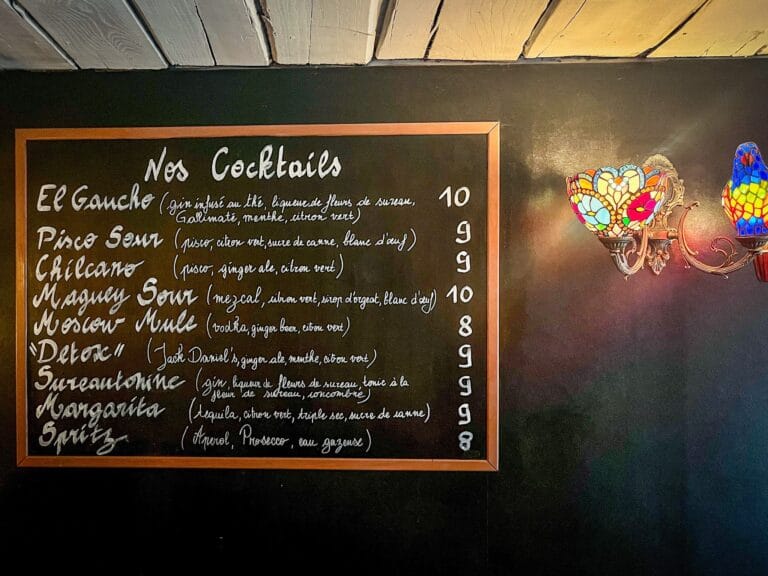 Nos Cocktails
El Gaucho (gin infusé au thé, liqueur de fleurs de sureau, 10
Gallimaté, menthe, citron vert)
Pisco Sour (pisco, citron vert, sucre de canne, blanc d'œuf) 9
Chilcano (pisco, ginger ale, citron vert) 9
Maguey Sour (mezcal, citron vert, sirop d'orgeat, blanc d'œuf) 10
Moscow Mule (vodka, ginger beer, citron vert) 8
"Detox" (Jack Daniel's, ginger ale, menthe, citron vert) 9
Sureautonine (gin, liqueur de fleurs de sureau, tonic à la 9
fleur de sureau, concombre)
Margarita (tequila, citron vert, triple sec, sucre de canne) 9
Spritz (Aperol, Prosecco, eau gazeuse) 8